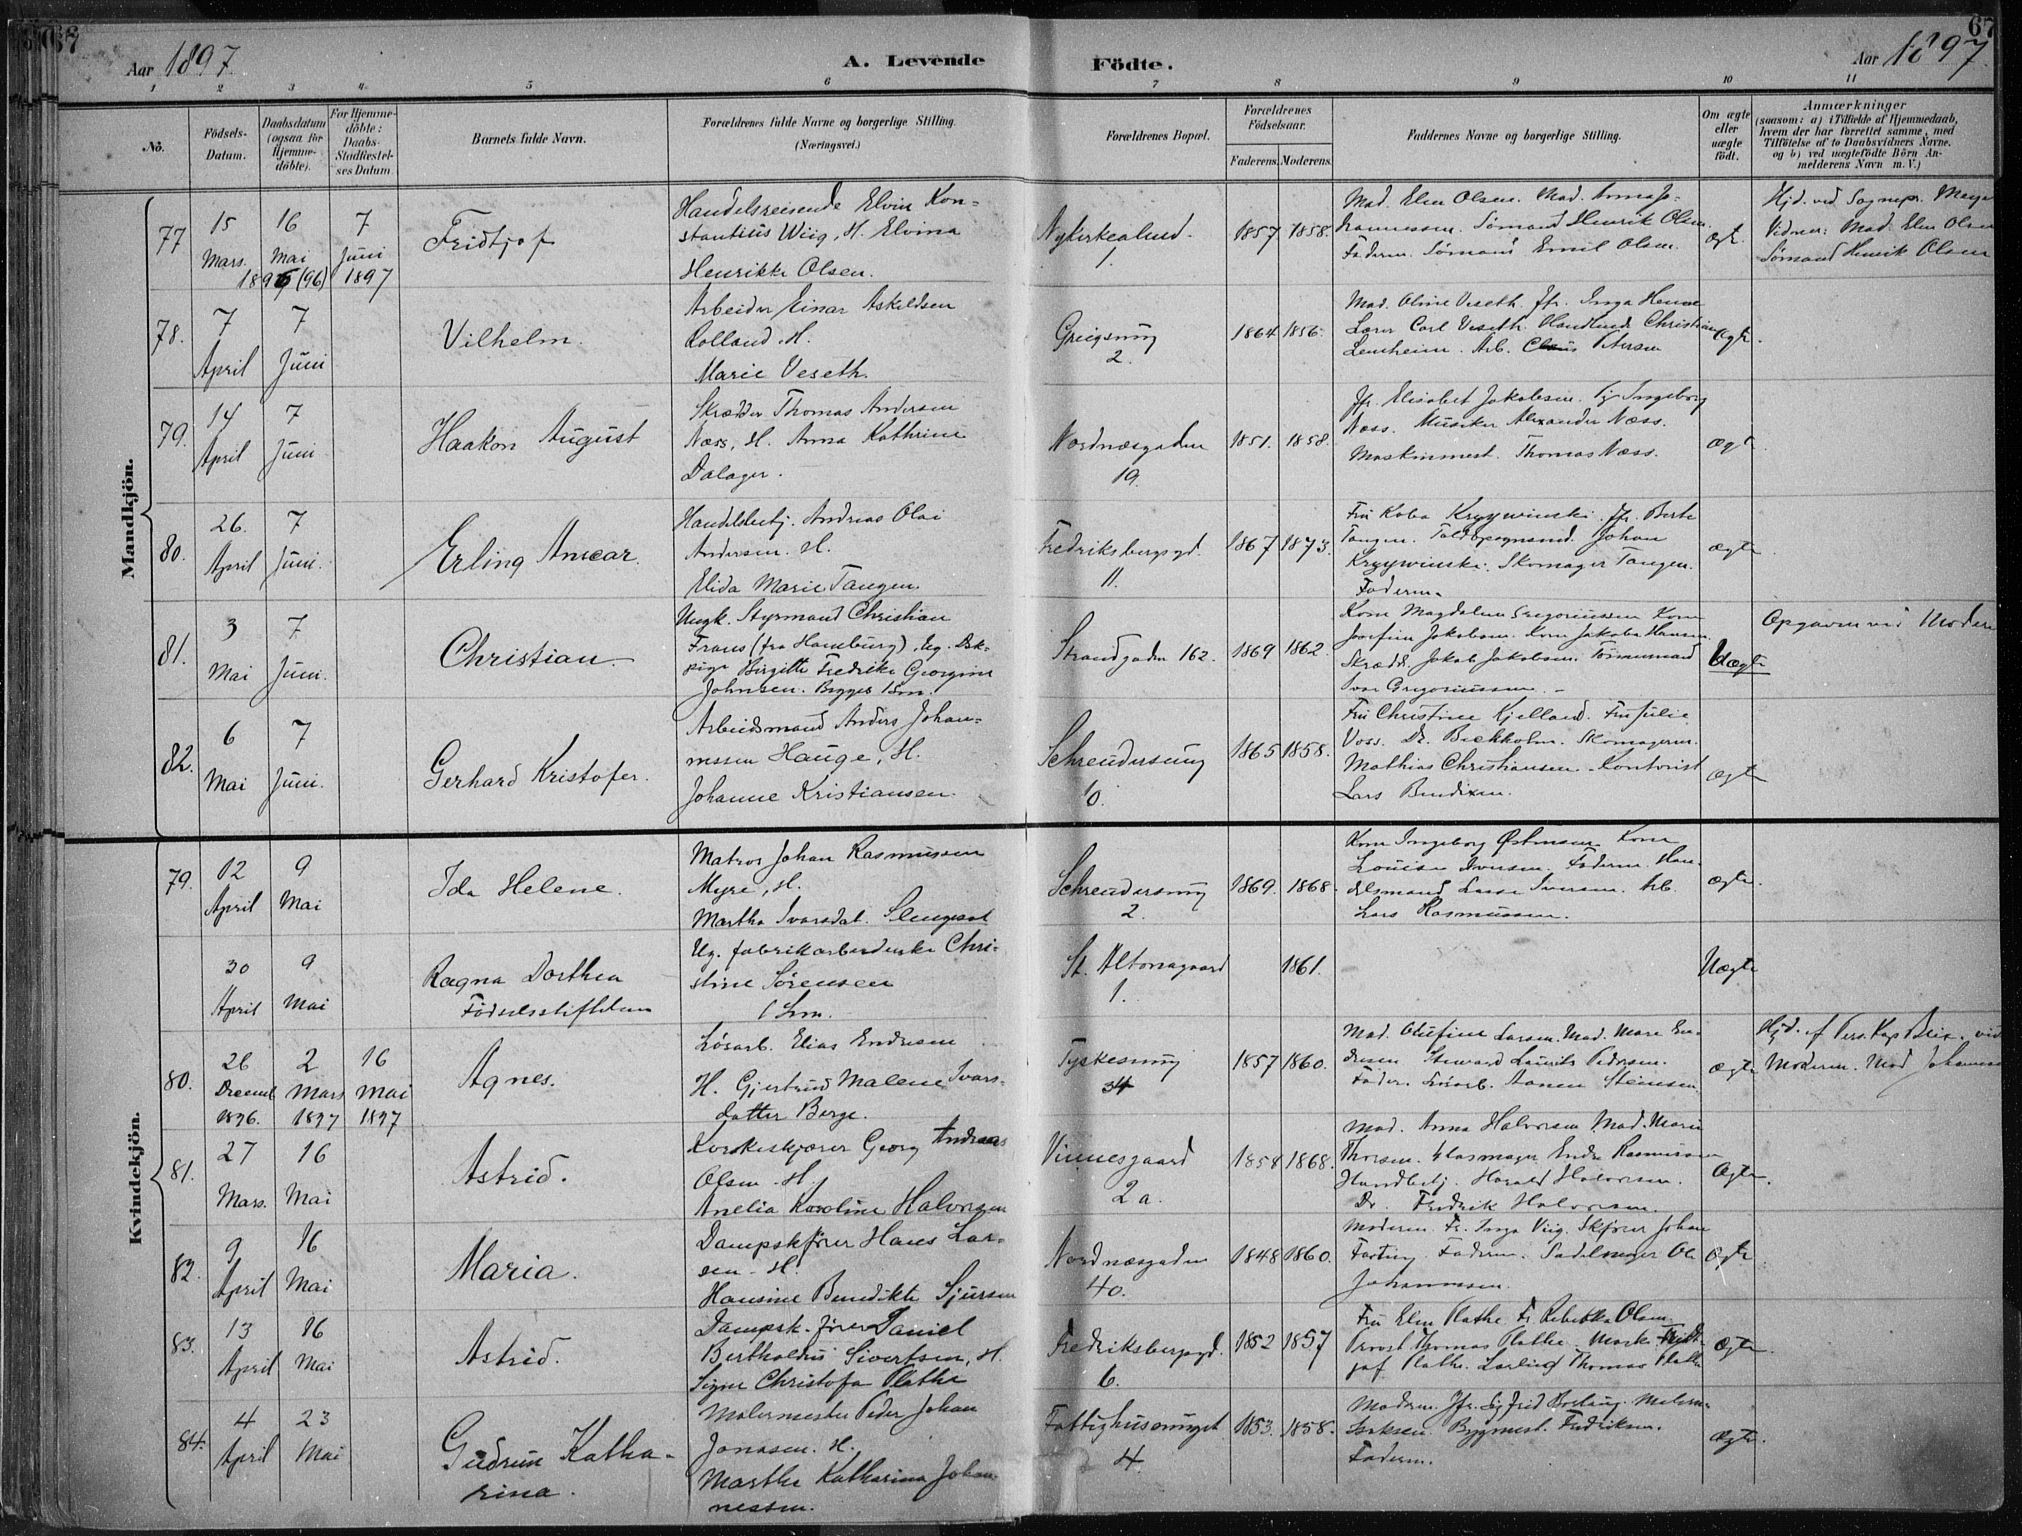 67
67
Aar 1897
A. Levende
Födte.
Aar 1897.
1 2 3 4 5 6 7 8 9 10 11
No.
Födsels-
Datum.
Daabsdatum
(ogsaa for
Hjemme-
döbte).
For Hjemme-
döbte:
Daabs-
Stadfæstel-
ses Datum.
Barnets fulde Navn.
Forældrenes fulde Navne og borgerlige Stilling.
(Næringsvei.)
Forældrenes Bopæl.
Forældrenes
Födselsaar.
Faderens. Moderens.
Faddernes Navne og borgerlige Stilling.
Om ægte
eller
uægte
födt.
Anmærkninger
(saasom: a) i Tilfælde af Hjemmedaab,
hvem der har forrettet samme, med
Tilföielse af to Daabsvidners Navne,
og b) ved uægtefödte Börn An-
melderens Navn m. V.)
Mandkjön.
77
15
Mars.
16
Mai
1896 (96)
7
Juni
1897
Fridtjof
Handelsreisende Elvin Kon-
stantius Wiig, H. Elvina
Henrikke Olsen.
Nykirkealmd.
1.
1857 1858.
Mad. Elen Olsen. Mad. Anna Jo-
hannessen. Sømand Henrik Olsen
Faderen. Sømand Emil Olsen.
ægte
Hjd. ved Sognepr.
Vidner: Mad. Elen Olsen
Sømand Henrik Olsen
78.
7
April
7
Juni
Vilhelm.
Arbeider Einar Askeldsen
Rolland. H.
Marie Veseth.
Griegsmug
2.
1864 1856.
Mad. Oline Veseth. Jfr. Inga
Lærer Carl Veseth. Christian
Arb. Claus Petersen
ægte.
79.
14
April
7
Juni
Haakon August
Skrædder Thomas Andersen
Næss, H. Anna Kathrine
Dalager.
Nordnæsgaden
19.
1851. 1858.
Jfr. Elisabet Jakobsen. Pg Ingeborg
Næss. Musiker Alexander Næss.
Maskinmest. Thomas Næss.
ægte
80.
26.
April
7
Juni.
Erling Anscar.
Handelsbetj. Andreas Olai
Andersen. H.
Elida Marie Tangen
Fredriksbergsgd.
11.
1867 1873.
Fru Kaba Krzywinski. Jfr. Berte
Tangen. Johan
Krzywinski. Skomager Tangen.
Faderen.
ægte
81.
3
Mai
7
Juni.
Christian
Ungk. Styrmand Christian
Frans (fra Hamburg),
pige Birgitte Fredrike Georgine
Johnsen. Begges 1 Lm.
Strandgaden 162.
1869 1862.
Kone Magdalene Gregoriussen Kone
Josefine Jakobsen. Kone Jakoba Hansen
Skrædd. Jakob Jakobsen. Tømmermand
Ivar Gregoriussen.
Uægte
Opgaven ved Moderen
82.
6
Mai
7
Juni.
Gerhard Kristofer.
Arbeidsmand Anders Johan-
nessen Hauge, H.
Johanne Kristiansen.
Schreudersmug
10.
1865 1858.
Fru Christine Kjelland. Fru Julie
Voss. Dr. Beckholm. Skomagerm.
Mathias Christiansen. Kontorist
Lars Bendixen.
ægte
Kvindekjön.
79.
12
April
9
Mai
Ida Helene.
Matros Johan Rasmussen
Myre, H.
Martha Ivarsdat.
Schreudersmug
2.
1869. 1868.
Kone Ingeborg Østensen. Kone
Louise Iversen. Faderen. Han-
delsmand Lasse Iversen. Arb.
Lars Rasmussen.
ægte
30
April
9
Mai
Ragna Dorthea
Fødselsstiftelsen
Ug. fabrikarbeiderske Chri-
stine Sørensen
1 Lm.
St. Altonagaard
1.
1861.
Uægte
80.
26
Decembr
1896.
2
Mars
1897
16
Mai
1897
Agnes.
Løsarb. Elias Endresen
H. Gjertrud Malene Ivars-
datter Berge.
Tyskesmug
34
1857 1860.
Mad. Olufine Larsen. Mad. Mare En-
dresen Steward Laurits Pedersen.
Fader. Løsarb. Aanen Steinsen.
ægte
Hjd. af Pers. Kap Blix. vid
Moderen. Mad Johannesen
81.
27
Mars.
16
Mai
Astrid.
Korkeskjærer Georg Andreas
Olsen. H.
Anelia Karoline Halvorsen
Vinnesgaard
2 a.
1854 1868.
Mad. Anna Halvorsen Mad. Marie
Thorsen. Glasmager Endre Rasmussen
Handbetj. Harald Halvorsen.
Dr. Fredrik Halvorsen.
Ægte.
82.
9
April
16
Mai
Maria.
Dampskfører Hans Lar-
sen. H.
Hansine Benedikte Sjursen
Nordnæsgaden
40.
1848 1860.
Moderen. Fr. Inga Viig. Skfører Johan
Fasting. Faderen. Sadelmager Ol.
Johannesen.
ægte
83.
13
April
16
Mai
Astrid.
Dampsk. fører Daniel
Bertholdus Sivertsen, H.
Signe Christofa Plathe
Fredriksbergsgd.
6.
1852 1857
Fru Elen Plathe Fr. Rebekka Olsen
Provst Thomas Plathe. Mask. Fridt-
jof Plathe. Lærling Thomas Plathe
ægte.
84.
4
April
23
Mai
Gudrun Katha-
rina.
Malermester Peder Johan
Jonasen. H.
Marthe Katharina Johan
nessen.
Fattighussmuget
4.
1853. 1858.
Moderen. Jfr. Sigfrid
Isaksen. Bygmest. Fredriksen.
Faderen.
ægte.